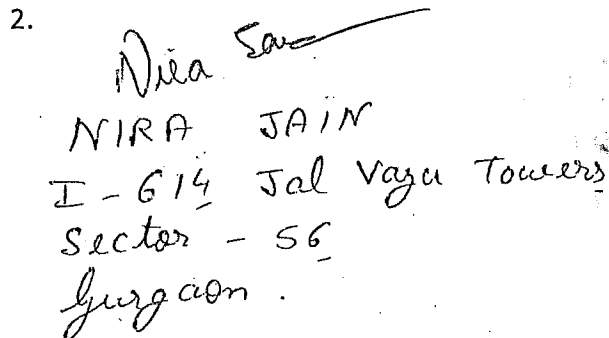 2.
Nira
NIRA JAIN
I - 614 Jal Vayu Towers
Sector - 56
Gurgaon.